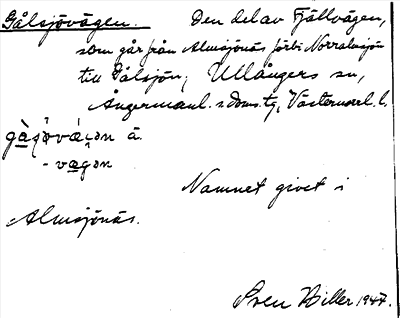 Gålsjövägen. Den del av Fjällvägen,
som går från Almsjönäs förbi Norralmsjön
till Gålsjön, Ullångers sn,
Ångermanl. s. doms. tg, Västernorrl. l.
Namnet givet i
Almsjönäs.
Sven Hiller 1947.